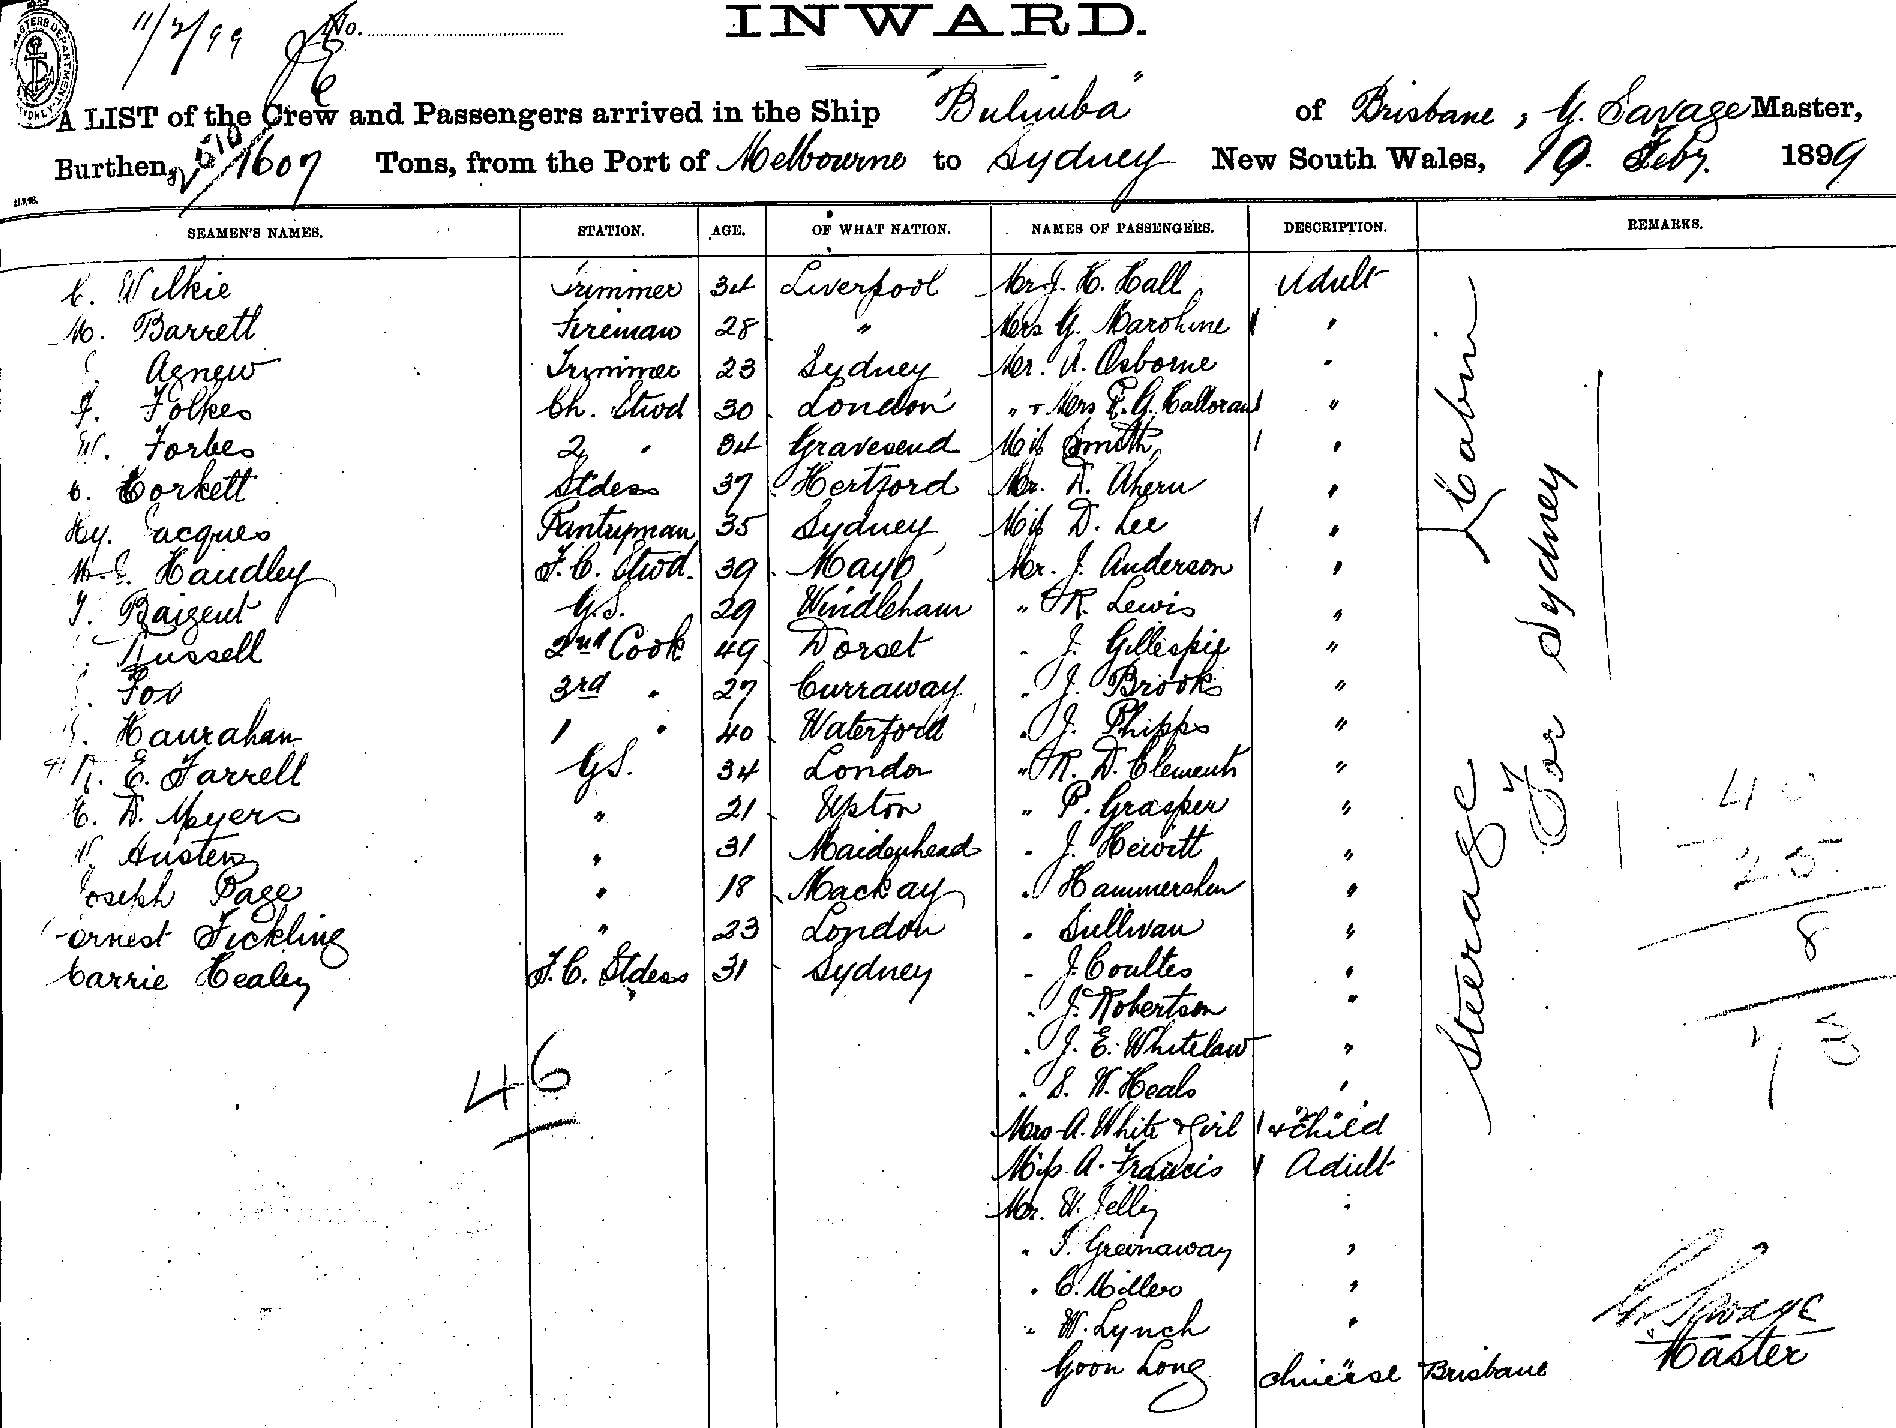 11/2/99 No.
INWARD.
A LIST of the Crew and Passengers arrived in the Ship "Bulimba" of Brisbane, G. Savage Master,
Burthen, 2510/1607 Tons, from the Port of Melbourne to Sydney New South Wales, 10. Feby. 1899
SEAMEN'S NAMES. STATION. AGE. OF WHAT NATION. NAMES OF PASSENGERS. DESCRIPTION. REMARKS.
C. Wilkie Trimmer 34 Liverpool Mr J. H. Hall Adult
M. Barrett Fireman 28 " Mrs G. 1 "
Agnew Trimmer 23 Sydney Mr. A. Osborne "
F. Folkes Ch. Stwd 30 London " + Mrs F. G. Halloran 1 "
W. Forbes 2 " 34 Gravesend Miss Smith 1 "
C. Corkett Stdess 37 Hertford Mr. D. Ahern "
Hy. Jacques Pantryman 35 Sydney Miss D. Lee 1 "
Handley F.C. Stwd. 39 Mayo Mr. J. Anderson "
T. Baigent G.S. 29 Windleham " R. Lewis "
Russell 2nd Cook 49 Dorset " J. Gillespie "
Fox 3rd " 27 Curraway " J. Brooks "
Hanrahan 1 " 40 Waterford " J. Phipps "
R. E. Farrell G.S. 34 London " R. D. Clements "
E. D. Meyers " 21 Upton " P. Grasper "
W. Austen " 31 Maidenhead " J. Hewitt "
Joseph Page " 18 Mackay " "
Ernest Fickling " 23 London " Sullivan "
Carrie Healey F.C. Stdess 31 Sydney " J. Coultes "
" J. Robertson "
" J. E. Whitelaw "
" S. W. Heals "
Mrs A. White & Girl 1 & Child
Miss A. Francis 1 Adult
Mr. W. Jelly "
" T. Greenaway "
" C. Millers "
" W. Lynch "
Goon Long Chinese Brisbane
46
Cabin
Steerage
For Sydney
40
25
8
73
G. Savage
Master